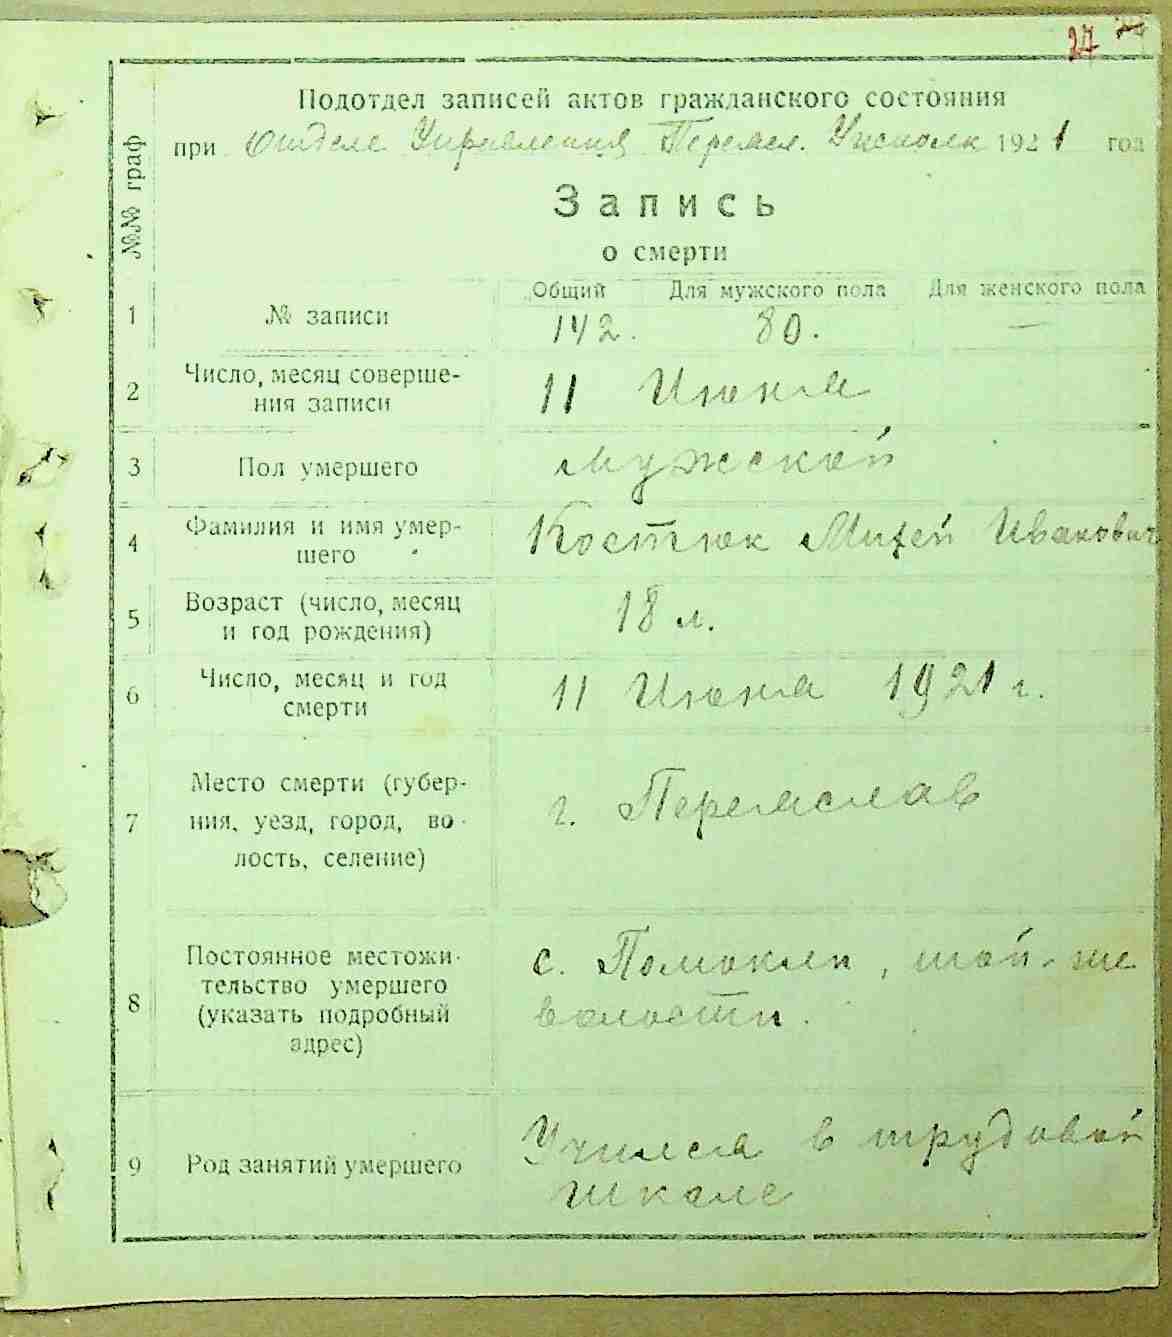 27
Подотдел записей актов гражданского состояния
при Отделе Управления Переясл. Уисполк 1921 год
№№ граф
Запись
о смерти
Общий Для мужского пола Для женского пола
1 № записи 142. 80. —
2 Число, месяц соверше-
ния записи 11 Июня
3 Пол умершего мужской
4 Фамилия и имя умер-
шего Костюк Михей Иванович
5 Возраст (число, месяц
и год рождения) 18 л.
6 Число, месяц и год
смерти 11 Июня 1921 г.
7 Место смерти (губер-
ния, уезд, город, во-
лость, селение) г. Переяслав
8 Постоянное местожи-
тельство умершего
(указать подробный
адрес) с. Помокли, той-же
волости.
9 Род занятий умершего Учился в трудовой
школе